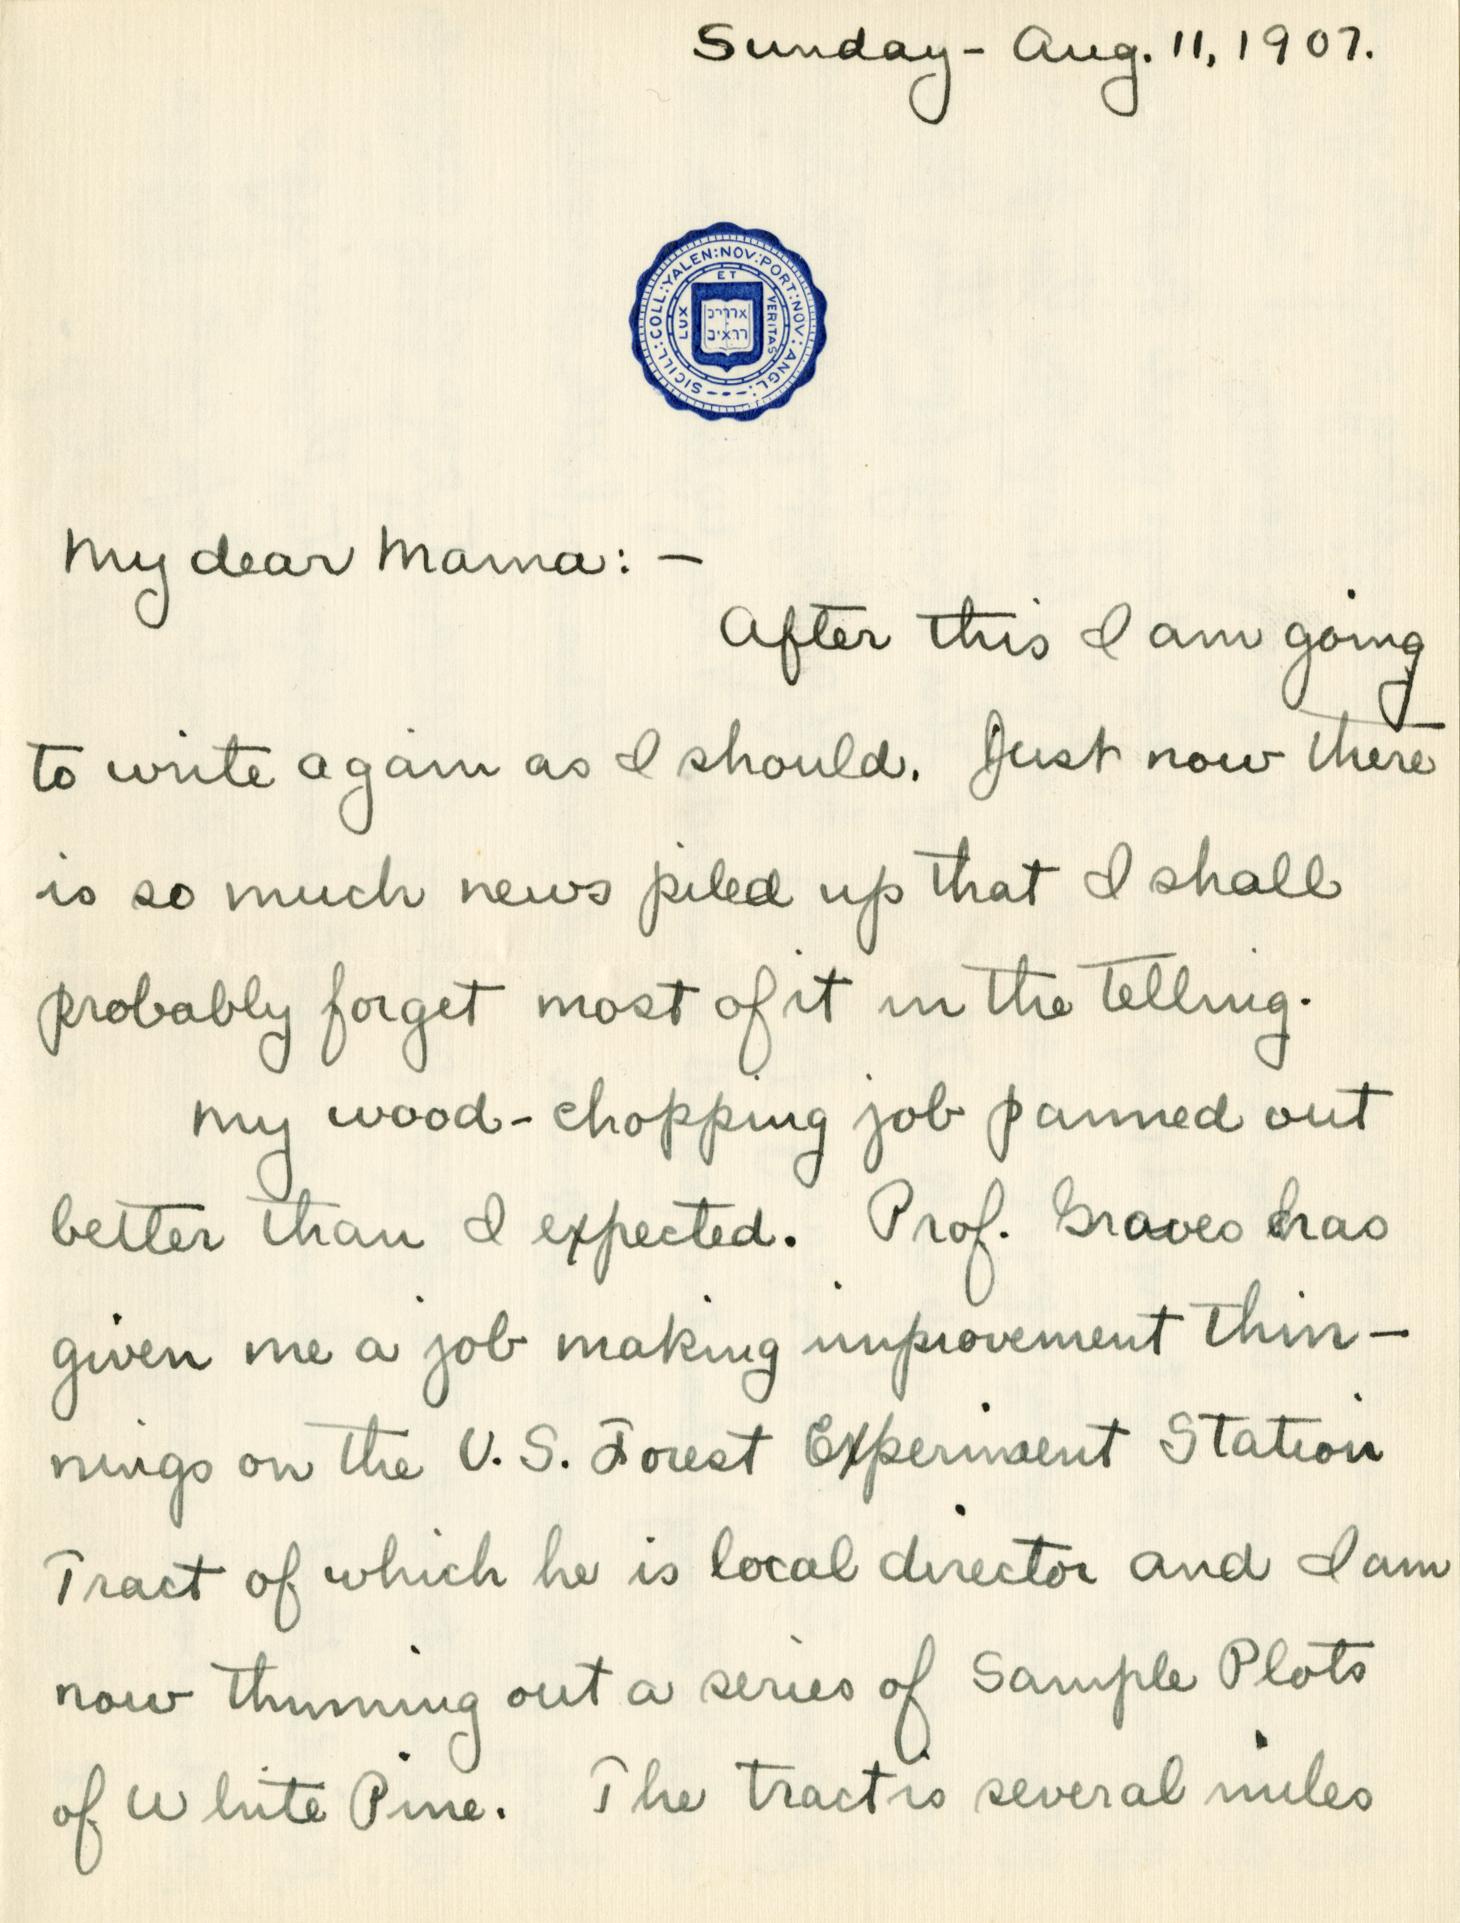 Sunday - Aug. 11, 1907.
SIGILL: COLL: YALEN: NOV: PORT: NOV: ANGL:
ET
LUX
VERITAS
My dear Mama: -
After this I am going
to write again as I should. Just now there
is so much news piled up that I shall
probably forget most of it in the telling.
My wood-chopping job panned out
better than I expected. Prof. Graves has
given me a job making improvement thin-
nings on the U.S. Forest Experiment Station
Tract of which he is local director and I am
now thinning out a series of Sample Plots
of White Pine. The tract is several miles